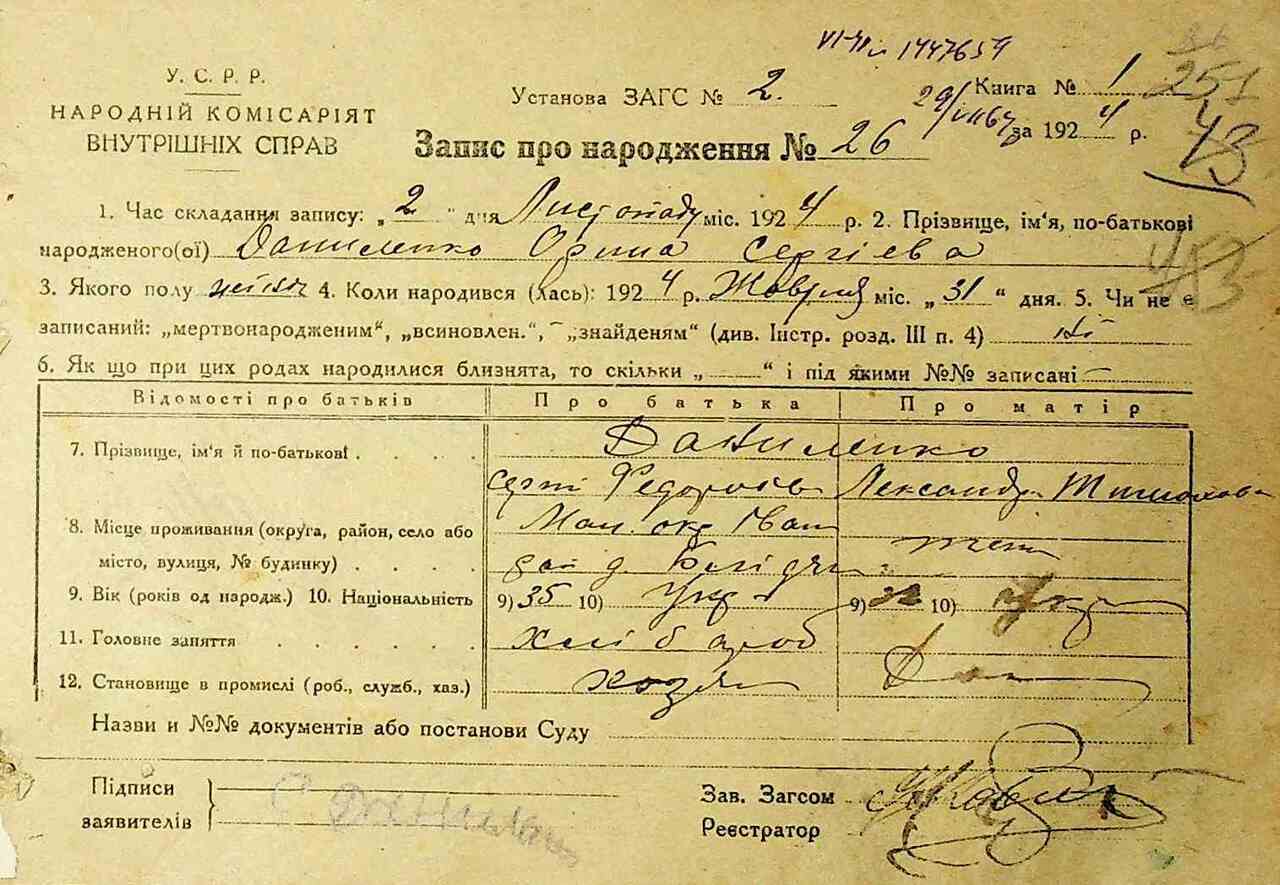 VI-УП 1447659
У. С. Р. Р.
НАРОДНІЙ КОМІСАРІЯТ
ВНУТРІШНІХ СПРАВ
Установа ЗАГС № 2.
Книга № 1
251
29/VII67
за 1924 р.
43
Запис про народження № 26
1. Час складання запису: „2“ дня Листопаду міс. 1924 р. 2. Прізвище, ім‘я, по-батькові
народженого(ої) Даниленко Орина Сергієва
453
3. Якого полу жіноч 4. Коли народився (лась): 1924 р. Жовтня міс. „31“ дня. 5. Чи не є
записаний: „мертвонародженим“, „всиновлен.“, „знайденям“ (див. Інстр. розд. III п. 4) ні
6. Як що при цих родах народилися близнята, то скільки „ “ і під якими №№ записані
Відомості про батьків Про батька Про матір
7. Прізвище, ім‘я й по-батькові Даниленко
Сергій Федоровів Лександра Тимохова
8. Місце проживання (округа, район, село або
місто, вулиця, № будинку)
9. Вік (років од народж.) 10. Національність 9) 35 10) Укр 9) 32 10) Укр
11. Головне заняття хлібороб
12. Становище в промислі (роб., служб., хаз.) хозя Дом
Назви и №№ документів або постанови Суду
Підписи
заявителів С Даниленко
Зав. Загсом
Реєстратор